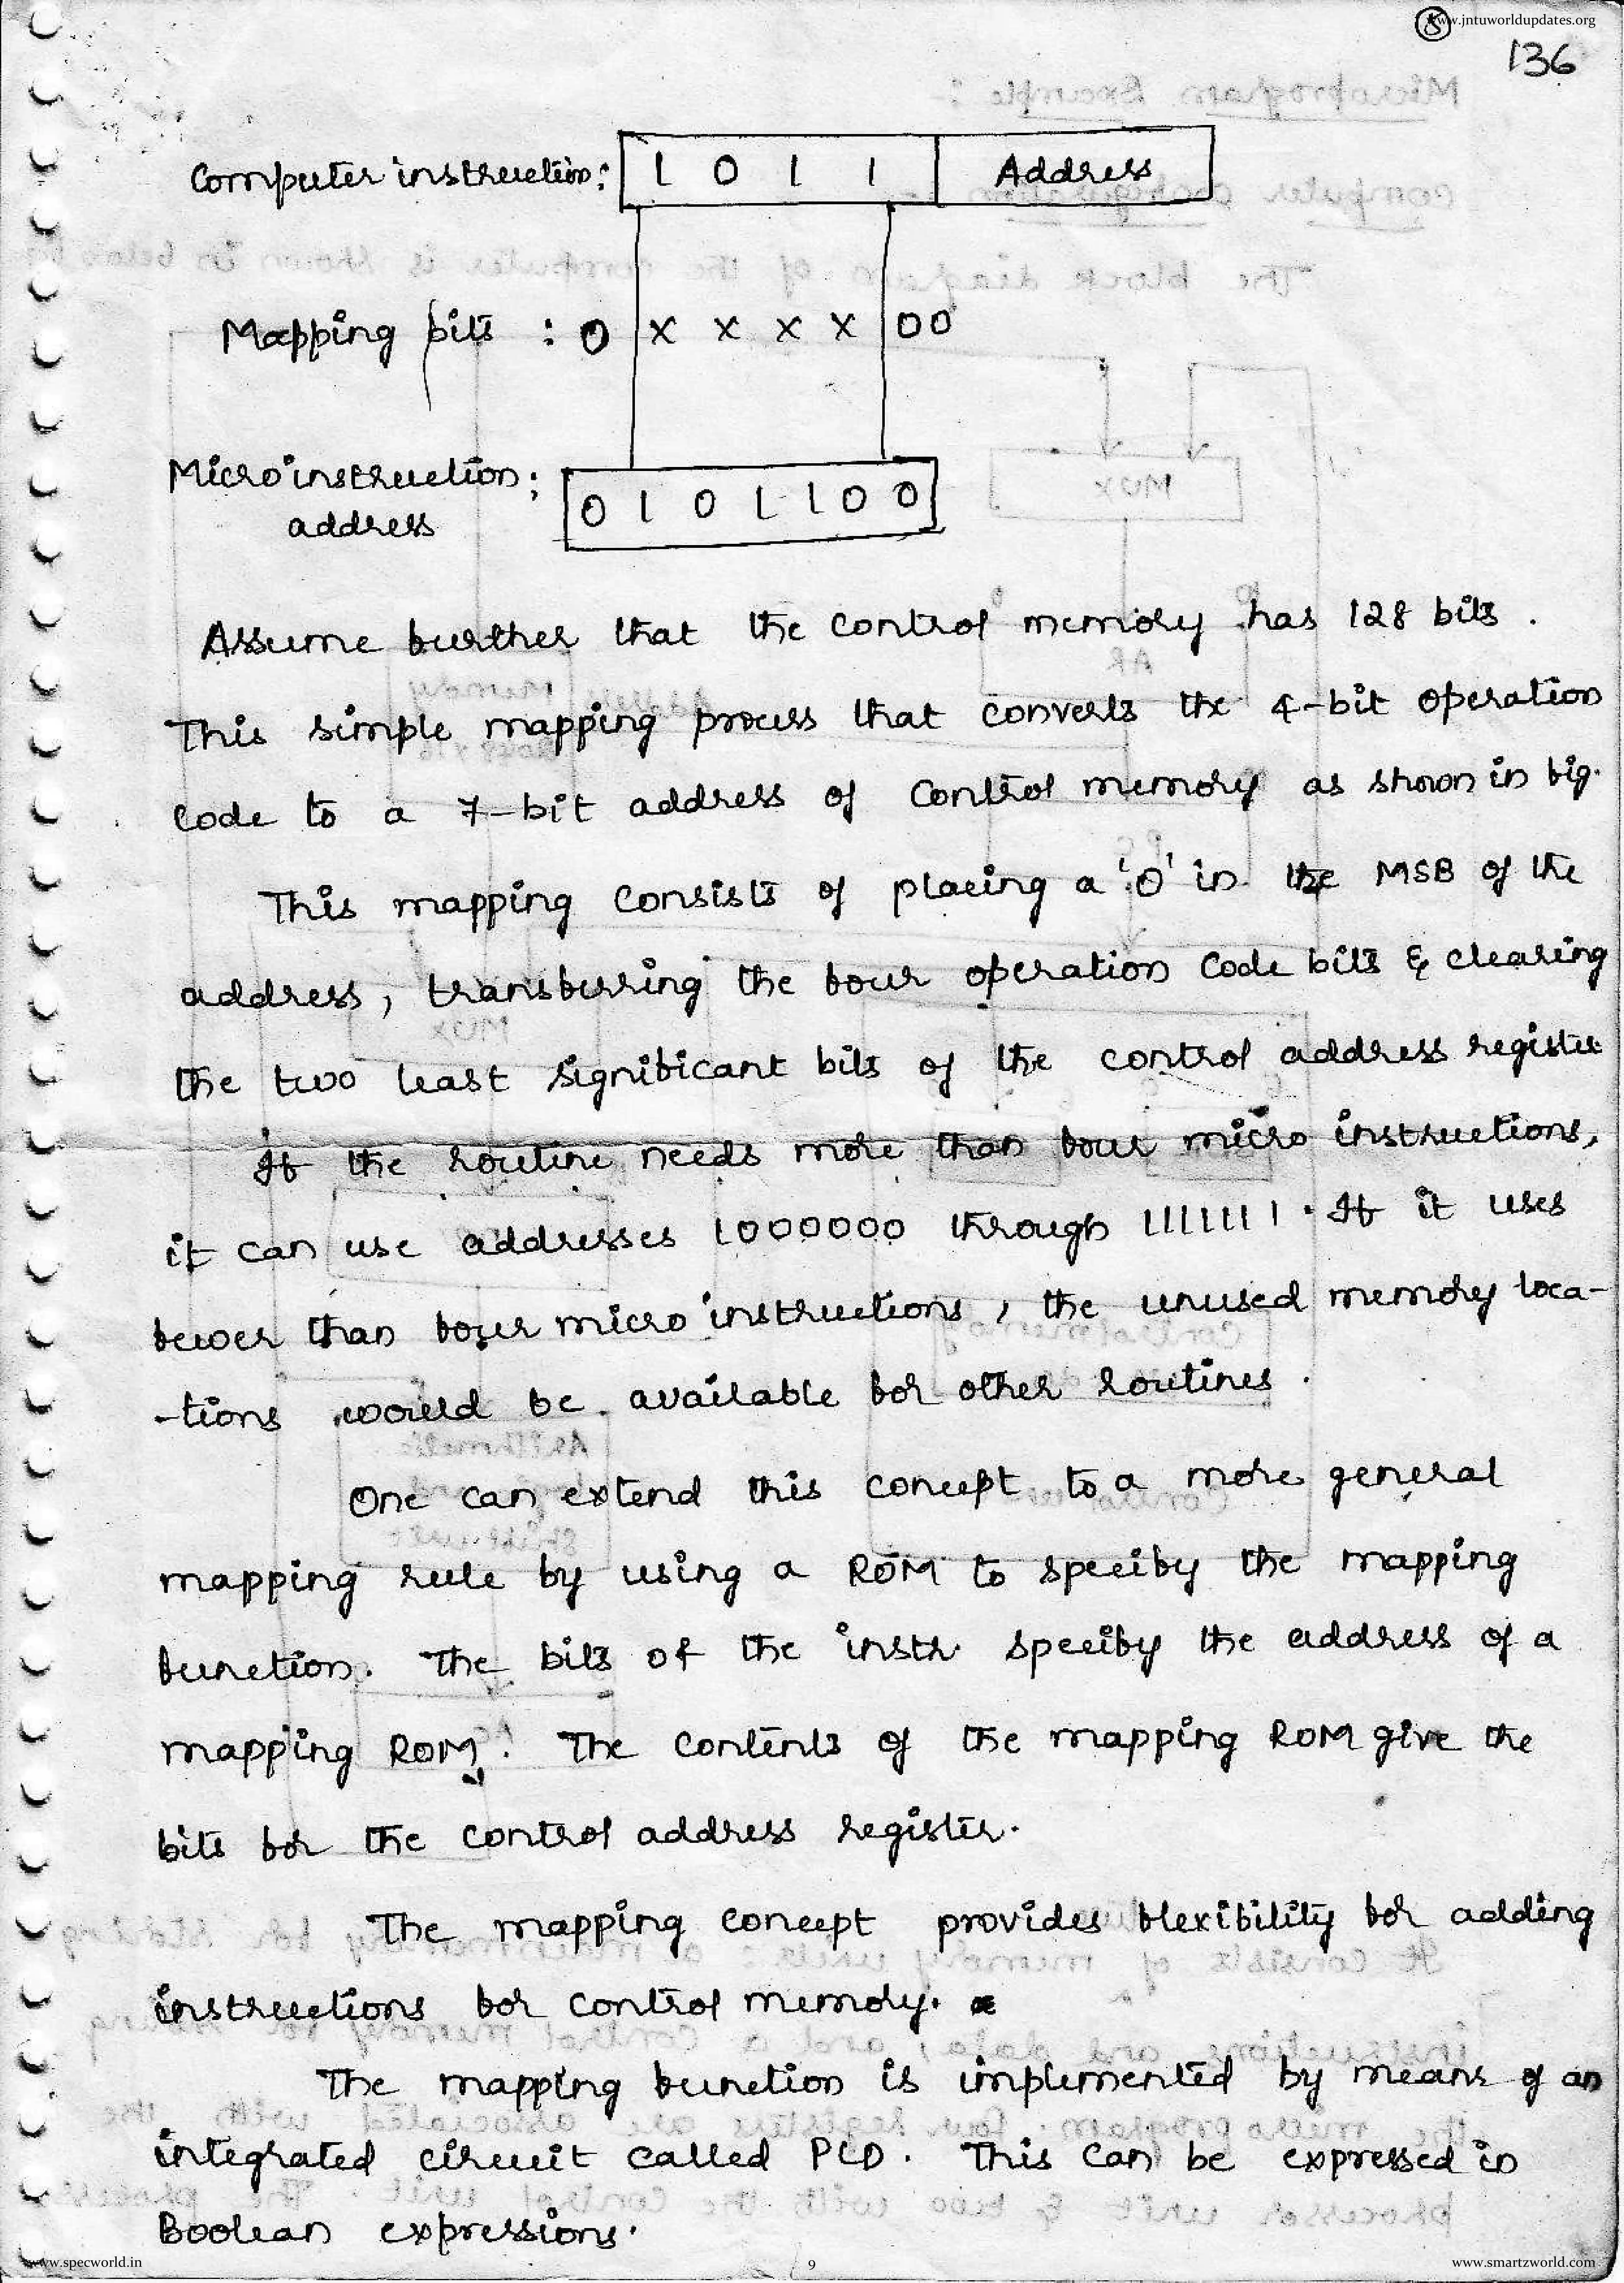 www.jntuworldupdates.org
136
Computer instruction: 1 0 1 1 Address
Mapping bits : 0 x x x x 00
Micro instruction: 0 1 0 1 1 0 0
address
Assume further that the control memory has 128 bits .
This simple mapping process that converts the 4-bit operation
code to a 7-bit address of control memory as shown in fig.
This mapping consists of placing a '0' in the MSB of the
address, transferring the four operation code bits & clearing
the two least significant bits of the control address register
If the routine needs more than four micro instructions,
it can use addresses 1000000 through 1111111. If it uses
fewer than four micro instructions, the unused memory loca-
-tions would be available for other routines .
One can extend this concept to a more general
mapping rule by using a ROM to specify the mapping
function. The bits of the instr. specify the address of a
mapping ROM. The contents of the mapping ROM give the
bits for the control address register.
The mapping concept provides flexibility for adding
instructions for control memory.
The mapping function is implemented by means of an
integrated circuit called PLD. This can be expressed in
Boolean expressions.
www.specworld.in 9 www.smartzworld.com